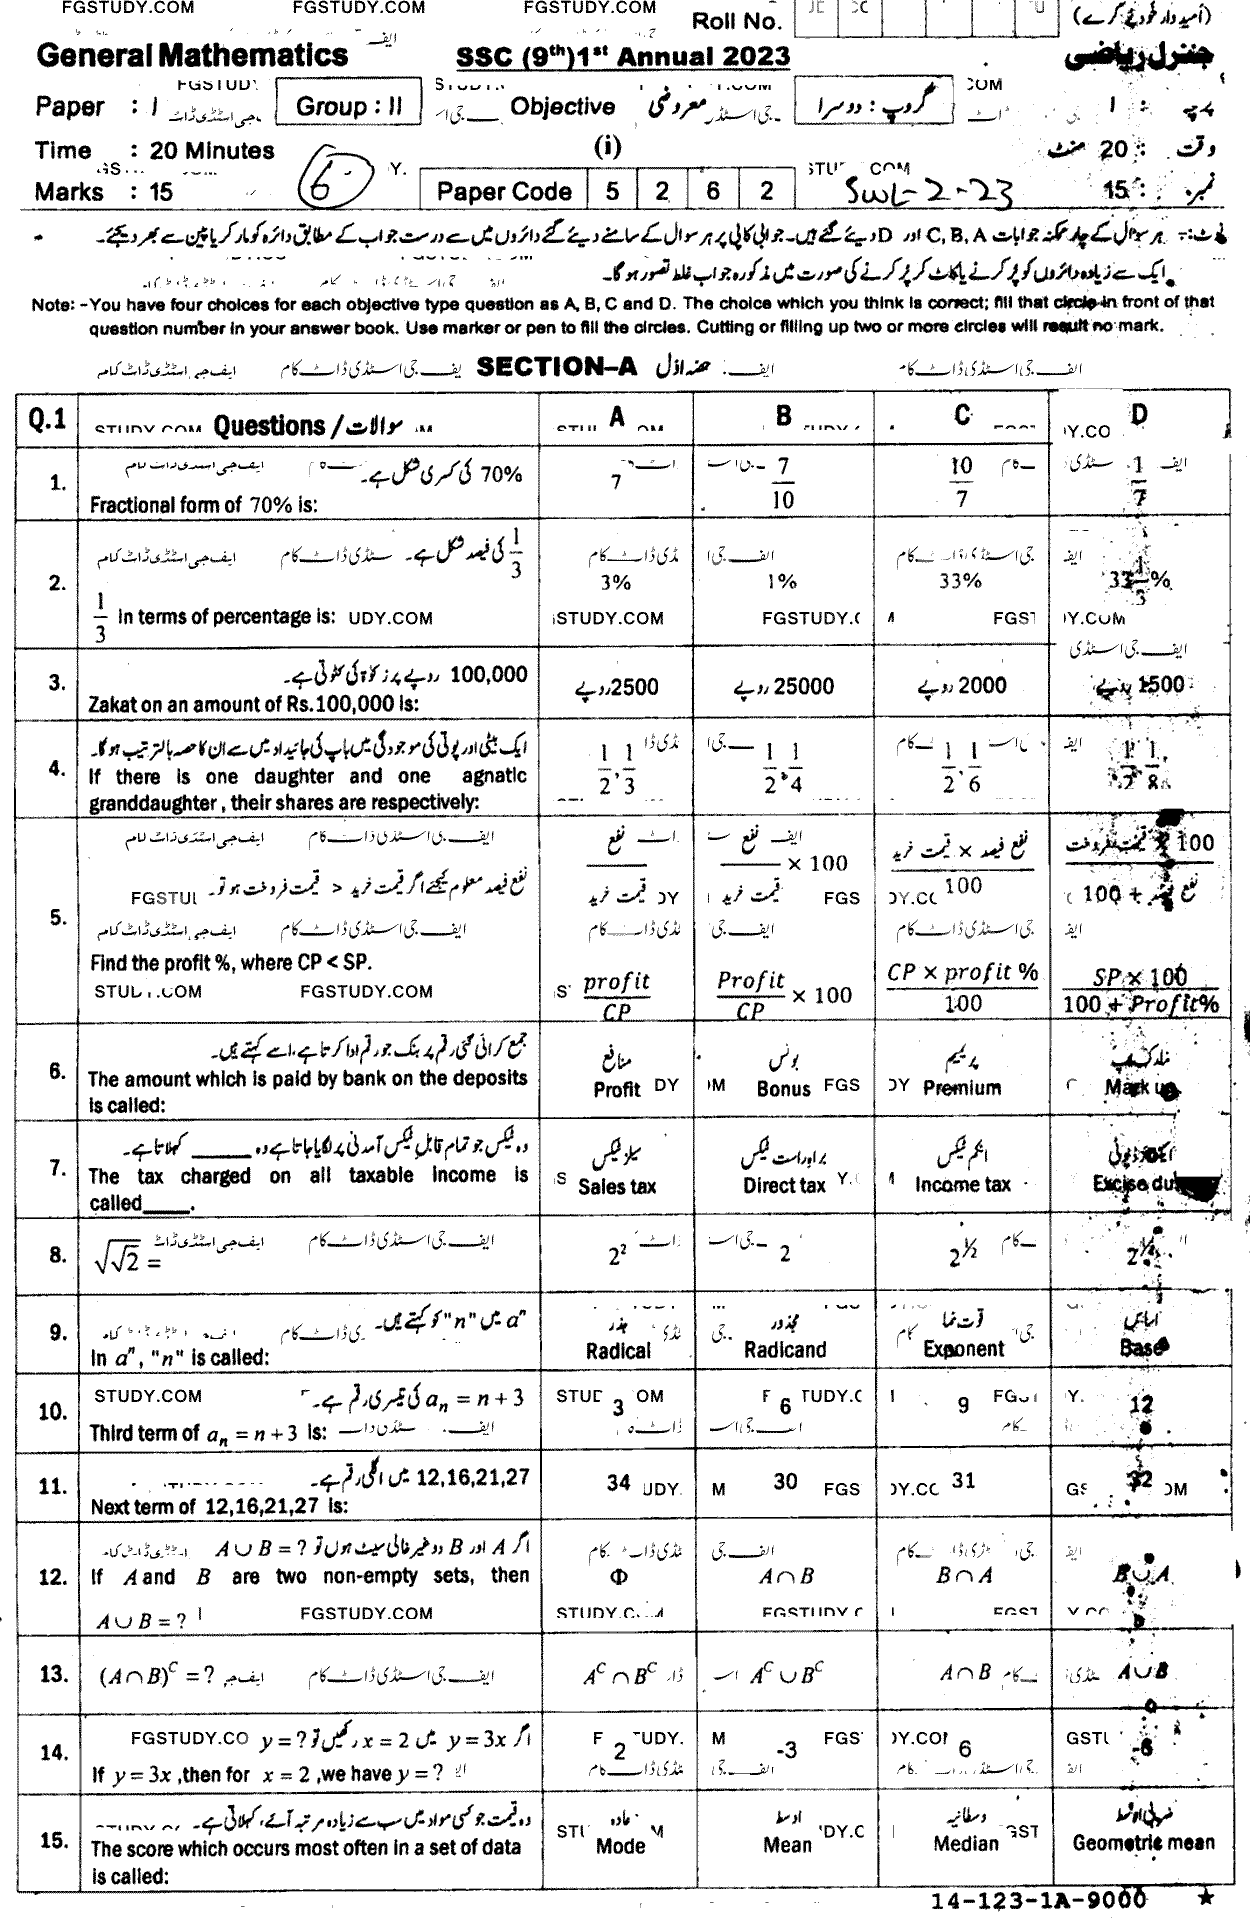 FGSTUDY.COM FGSTUDY.COM FGSTUDY.COM
Roll No. (امیدوار خود پُر کرے)
General Mathematics SSC (9th) 1st Annual 2023 جنرل ریاضی
Paper : I Group : II Objective معروضی گروپ : دوسرا پرچہ : I
Time : 20 Minutes (i) وقت : 20 منٹ
Marks : 15 6 Paper Code 5 2 6 2 SWL-2-23 نمبر : 15
نوٹ:- ہر سوال کے چار ممکنہ جوابات A, B, C اور D دیئے گئے ہیں۔ جوابی کاپی پر ہر سوال کے سامنے دیئے گئے دائروں میں سے درست جواب کے مطابق دائرہ کو مارکر یا پین سے بھر دیجئے۔
ایک سے زیادہ دائروں کو پُر کرنے یا کاٹ کر پُر کرنے کی صورت میں مذکورہ جواب غلط تصور ہو گا۔
Note: -You have four choices for each objective type question as A, B, C and D. The choice which you think is correct; fill that circle in front of that
question number in your answer book. Use marker or pen to fill the circles. Cutting or filling up two or more circles will result no mark.
SECTION–A حصہ اوّل
Q.1 Questions / سوالات A B C D
1. 70% کی کسری شکل ہے۔
Fractional form of 70% is: 7 7/10 10/7 1/7
2. 1/3 کی فیصد شکل ہے۔
1/3 in terms of percentage is: 3% 1% 33% 33 1/3 %
3. 100,000 روپے پر زکوٰۃ کی کٹوتی ہے۔
Zakat on an amount of Rs.100,000 is: 2500روپے 25000 روپے 2000 روپے 1500 روپے
4. ایک بیٹی اور پوتی کی موجودگی میں باپ کی جائیداد میں سے ان کا حصہ بالترتیب ہو گا۔
If there is one daughter and one agnatic
granddaughter, their shares are respectively: 1/2, 1/3 1/2, 1/4 1/2, 1/6 1/2, 1/8
5. نفع فیصد معلوم کیجئے اگر قیمت خرید < قیمت فروخت ہو تو۔
نفع / قیمت خرید نفع / قیمت خرید × 100 نفع فیصد × قیمت خرید / 100 قیمت فروخت × 100 / نفع فیصد + 100
Find the profit %, where CP < SP.
profit / CP Profit / CP × 100 CP × profit % / 100 SP × 100 / 100 + Profit%
6. جمع کرائی گئی رقم پر بنک جو رقم ادا کرتا ہے، اسے کہتے ہیں۔
منافع بونس پریمیم مارک اپ
The amount which is paid by bank on the deposits
is called: Profit Bonus Premium Mark up
7. وہ ٹیکس جو تمام قابل ٹیکس آمدنی پر لگایا جاتا ہے وہ ______ کہلاتا ہے۔
سیلز ٹیکس براہ راست ٹیکس انکم ٹیکس ایکسائز ڈیوٹی
The tax charged on all taxable income is
called____. Sales tax Direct tax Income tax Excise
8. √√2 = 2² 2 2^½ 2^¼
9. aⁿ میں "n" کو کہتے ہیں۔
جذر مجذور قوت نما اساس
In aⁿ, "n" is called: Radical Radicand Exponent Base
10. aₙ = n + 3 کی تیسری رقم ہے۔
Third term of aₙ = n + 3 is: 3 6 9 12
11. 12,16,21,27 میں اگلی رقم ہے۔
Next term of 12,16,21,27 is: 34 30 31 32
12. اگر A اور B دو غیر خالی سیٹ ہوں تو A ∪ B = ?
If A and B are two non-empty sets, then
A ∪ B = ? Φ A ∩ B B ∩ A B ∪ A
13. (A ∩ B)ᶜ = ? Aᶜ ∩ Bᶜ Aᶜ ∪ Bᶜ A ∩ B A ∪ B
14. اگر y = 3x میں x = 2 رکھیں تو y = ?
If y = 3x ,then for x = 2 ,we have y = ? 2 -3 6 -6
15. وہ قیمت جو کسی مواد میں سب سے زیادہ مرتبہ آئے، کہلاتی ہے۔
عادہ اوسط وسطانیہ ضربی اوسط
The score which occurs most often in a set of data
is called: Mode Mean Median Geometric mean
14-123-1A-9000 ★